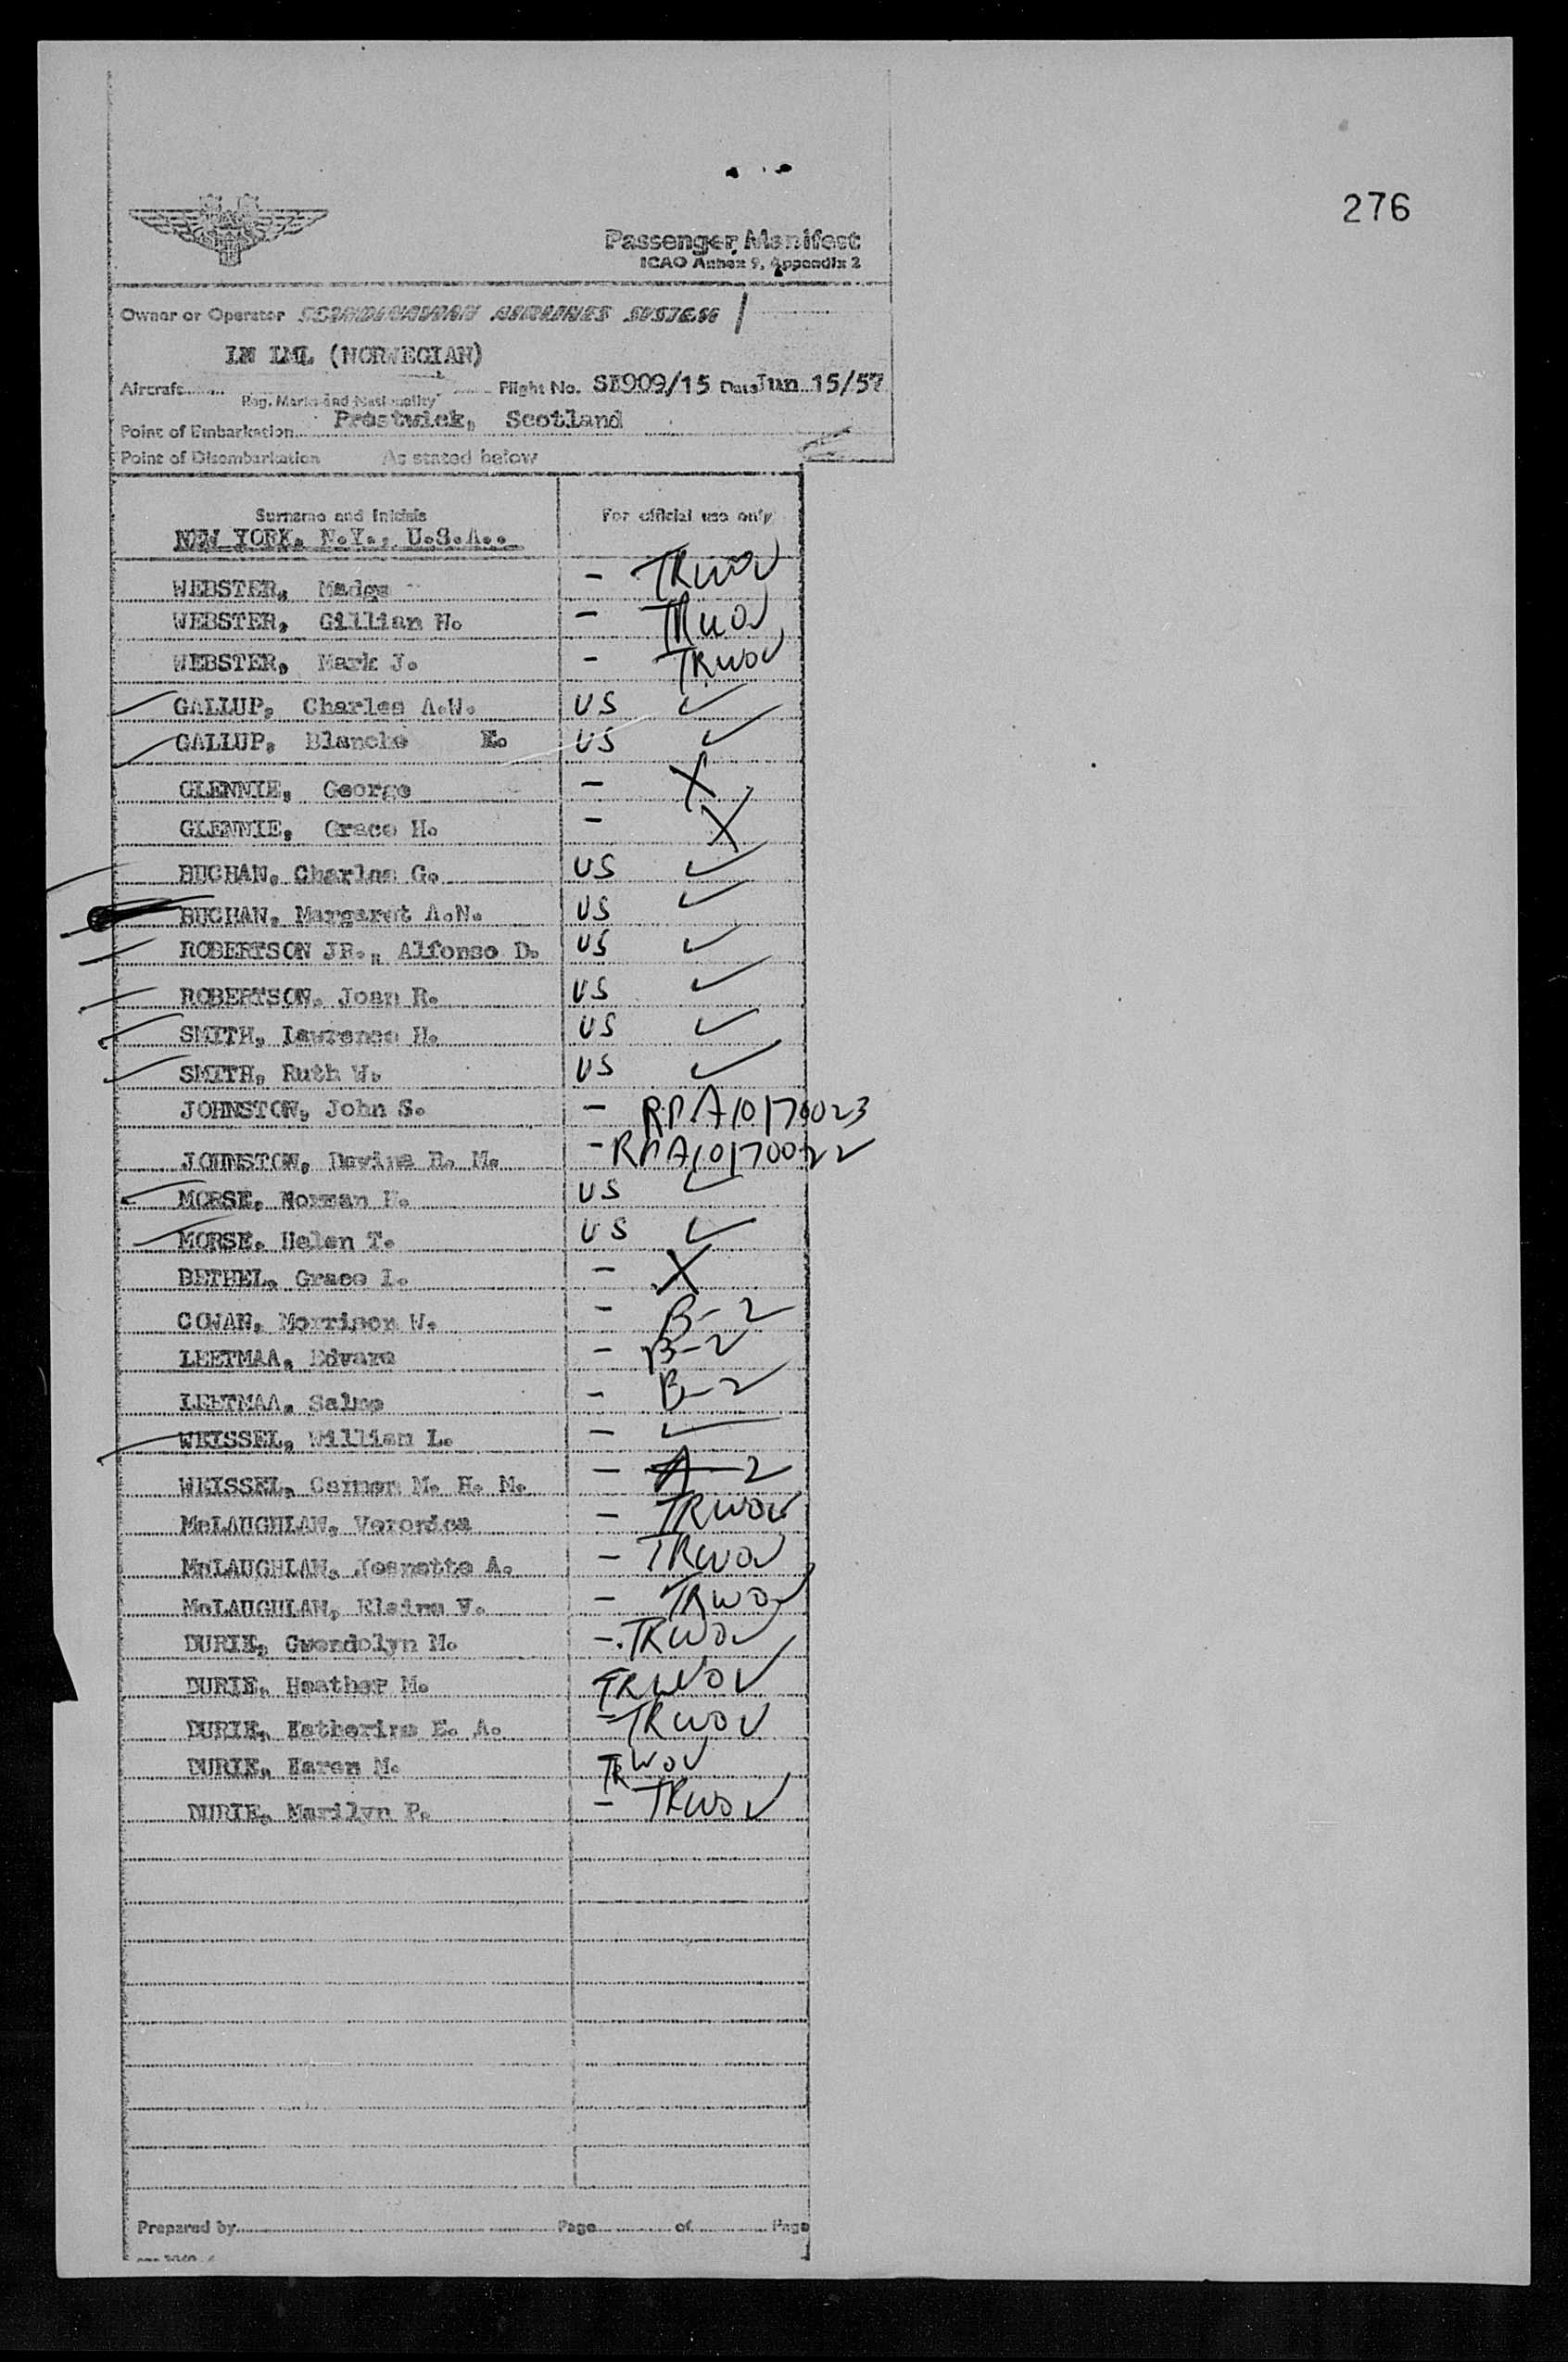 276
Passenger Manifest
ICAO Annex 9, Appendix 2
Owner or Operator SCANDINAVIAN AIRLINES SYSTEM
LN LML (NORWEGIAN)
Aircraft Flight No. SK909/15 Date Jun 15/57
Reg. Marks and Nationality
Point of Embarkation Prestwick, Scotland
Point of Disembarkation As stated below
Surname and Initials For official use only
NEW YORK, N.Y., U.S.A..
WEBSTER, Madge - TRWOV
WEBSTER, Gillian H. - TRWOV
WEBSTER, Mark J. - TRWOV
GALLUP, Charles A.W. US ✓
GALLUP, Blanche E. US ✓
GLENNIE, George - X
GLENNIE, Grace H. - X
BUCHAN, Charles G. US ✓
BUCHAN, Margaret A.N. US ✓
ROBERTSON JR., Alfonso D. US ✓
ROBERTSON, Joan R. US ✓
SMITH, Lawrence H. US ✓
SMITH, Ruth W. US ✓
JOHNSTON, John S. - RPA10170023
JOHNSTON, Davina R. M. - RPA10170022
MORSE, Norman US ✓
MORSE, Helen T. US ✓
BETHEL, Grace I. - X
COWAN, Morrison W. - B-2
LEETMAA, - B-2
LEETMAA, - B-2
WEISSEL, William L. - ✓
WEISSEL, Carmen M. H. M. - A-2
McLAUGHLAN, Veronica - TRWOV
McLAUGHLAN, Jeanette A. - TRWOV
McLAUGHLAN, Elaine V. - TRWOV
DURIE, Gwendolyn M. - TRWOV
DURIE, Heather M. TRWOV
DURIE, Katherine E. A. - TRWOV
DURIE, Karen M. TRWOV
DURIE, Marilyn P. - TRWOV
Prepared by Page of Page